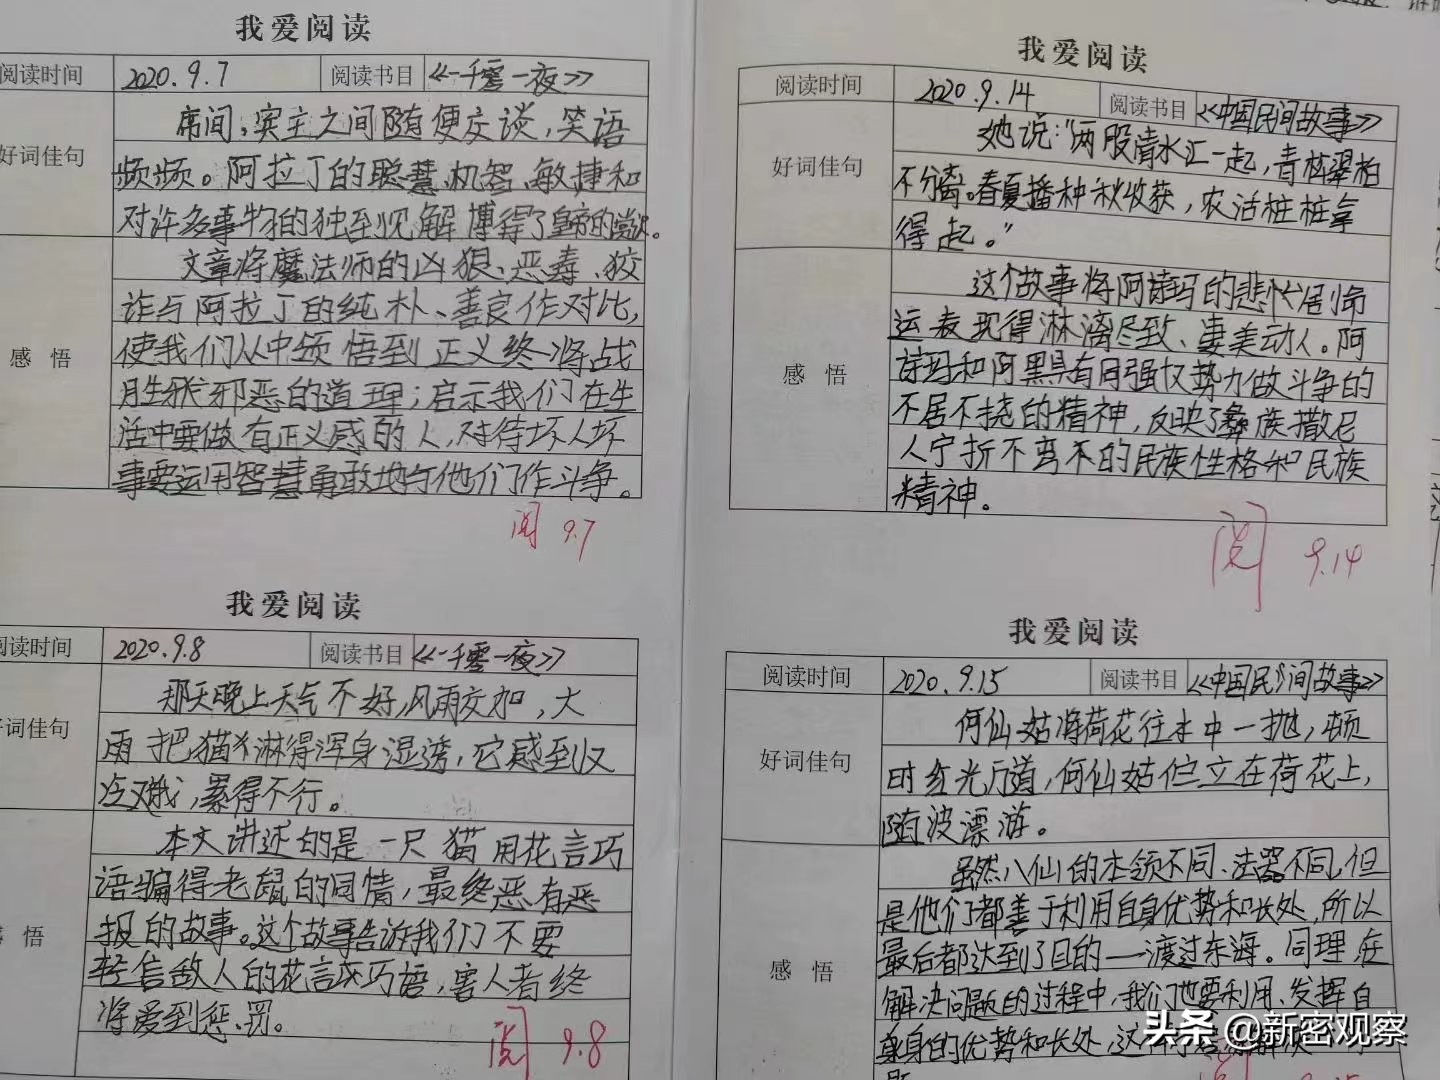 我爱阅读
阅读时间 2020.9.7 阅读书目 《一千零一夜》
好词佳句
席间,宾主之间随便交谈,笑语
频频。阿拉丁的聪慧、机智、敏捷和
对许多事物的独到见解博得了皇帝的赏识。
感悟
文章将魔法师的凶狠、恶毒、狡
诈与阿拉丁的纯朴、善良作对比,
使我们从中领悟到正义终将战
胜邪恶的道理;启示我们在生
活中要做有正义感的人,对待坏人坏
事要运用智慧勇敢地与他们作斗争。
阅 9.7
我爱阅读
阅读时间 2020.9.8 阅读书目 《一千零一夜》
好词佳句
那天晚上天气不好,风雨交加,大
雨把猫淋得浑身湿透,它感到又
冷又饿,累得不行。
感悟
本文讲述的是一只猫用花言巧
语骗得老鼠的同情,最终恶有恶
报的故事。这个故事告诉我们不要
轻信敌人的花言巧语,害人者终
将受到惩罚。
阅 9.8
我爱阅读
阅读时间 2020.9.14 阅读书目 《中国民间故事》
好词佳句
她说:"两股清水汇一起,青松翠柏
不分离。春夏播种秋收获,农活桩桩拿
得起。"
感悟
这个故事将阿诗玛的悲
运表现得淋漓尽致、凄美动人。阿
诗玛和阿黑具有同强权势力做斗争的
不屈不挠的精神,反映了彝族撒尼
人宁折不弯的民族性格和民族
精神。
阅 9.14
我爱阅读
阅读时间 2020.9.15 阅读书目 《中国民间故事》
好词佳句
何仙姑将荷花往水中一抛,顿
时红光万道,何仙姑伫立在荷花上,
随波漂游。
感悟
虽然八仙的本领不同、法器不同,但
是他们都善于利用自身优势和长处,所以
最后都达到了目的——渡过东海。同理,在
解决问题的过程中,我们也要利用、发挥自
身的优势和长处,这
头条@新密观察